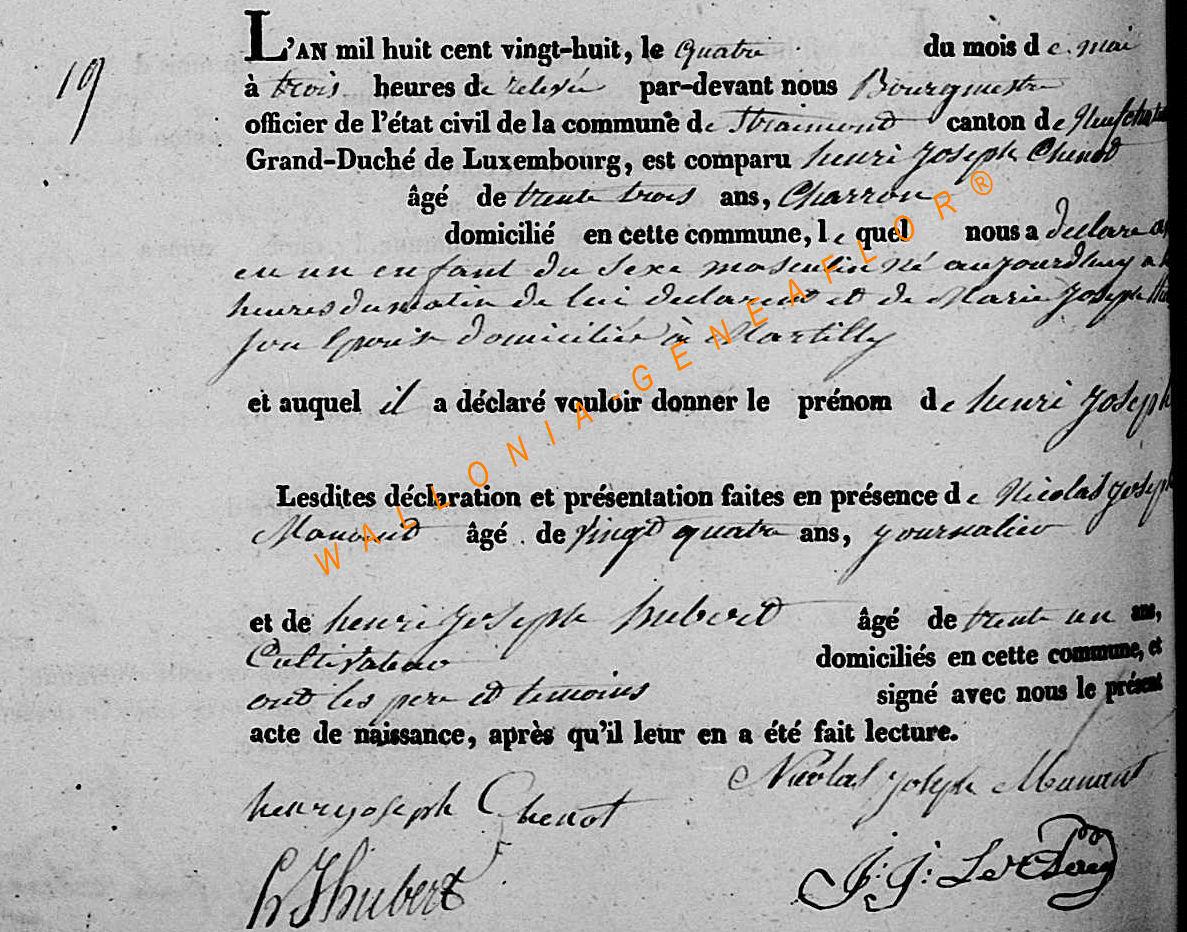 19
L'AN mil huit cent vingt-huit, le quatre du mois de mai
à trois heures de relevée par-devant nous Bourgmestre
officier de l'état civil de la commune de Straimont canton de Neufchateau
Grand-Duché de Luxembourg, est comparu henri joseph Chenot
âgé de trente trois ans, Charron
domicilié en cette commune, le quel nous a declare
en un enfant du Sexe masculin né aujourdhuy a
heures du matin de lui declarent et de Marie joseph
son Epouse domicilié à Martilly
et auquel il a déclaré vouloir donner le prénom de henri joseph
Lesdites déclaration et présentation faites en présence de Nicolas joseph
âgé de vingt quatre ans, journalier
et de henri joseph hubert âgé de trente un ans,
Cultivateur domiciliés en cette commune, et
ont les pere et temoins signé avec nous le présent
acte de naissance, après qu'il leur en a été fait lecture.
henry joseph Chenot
Nicolas joseph
h J hubert
J: J: Le
WALLONIA-GENEAFLOR®